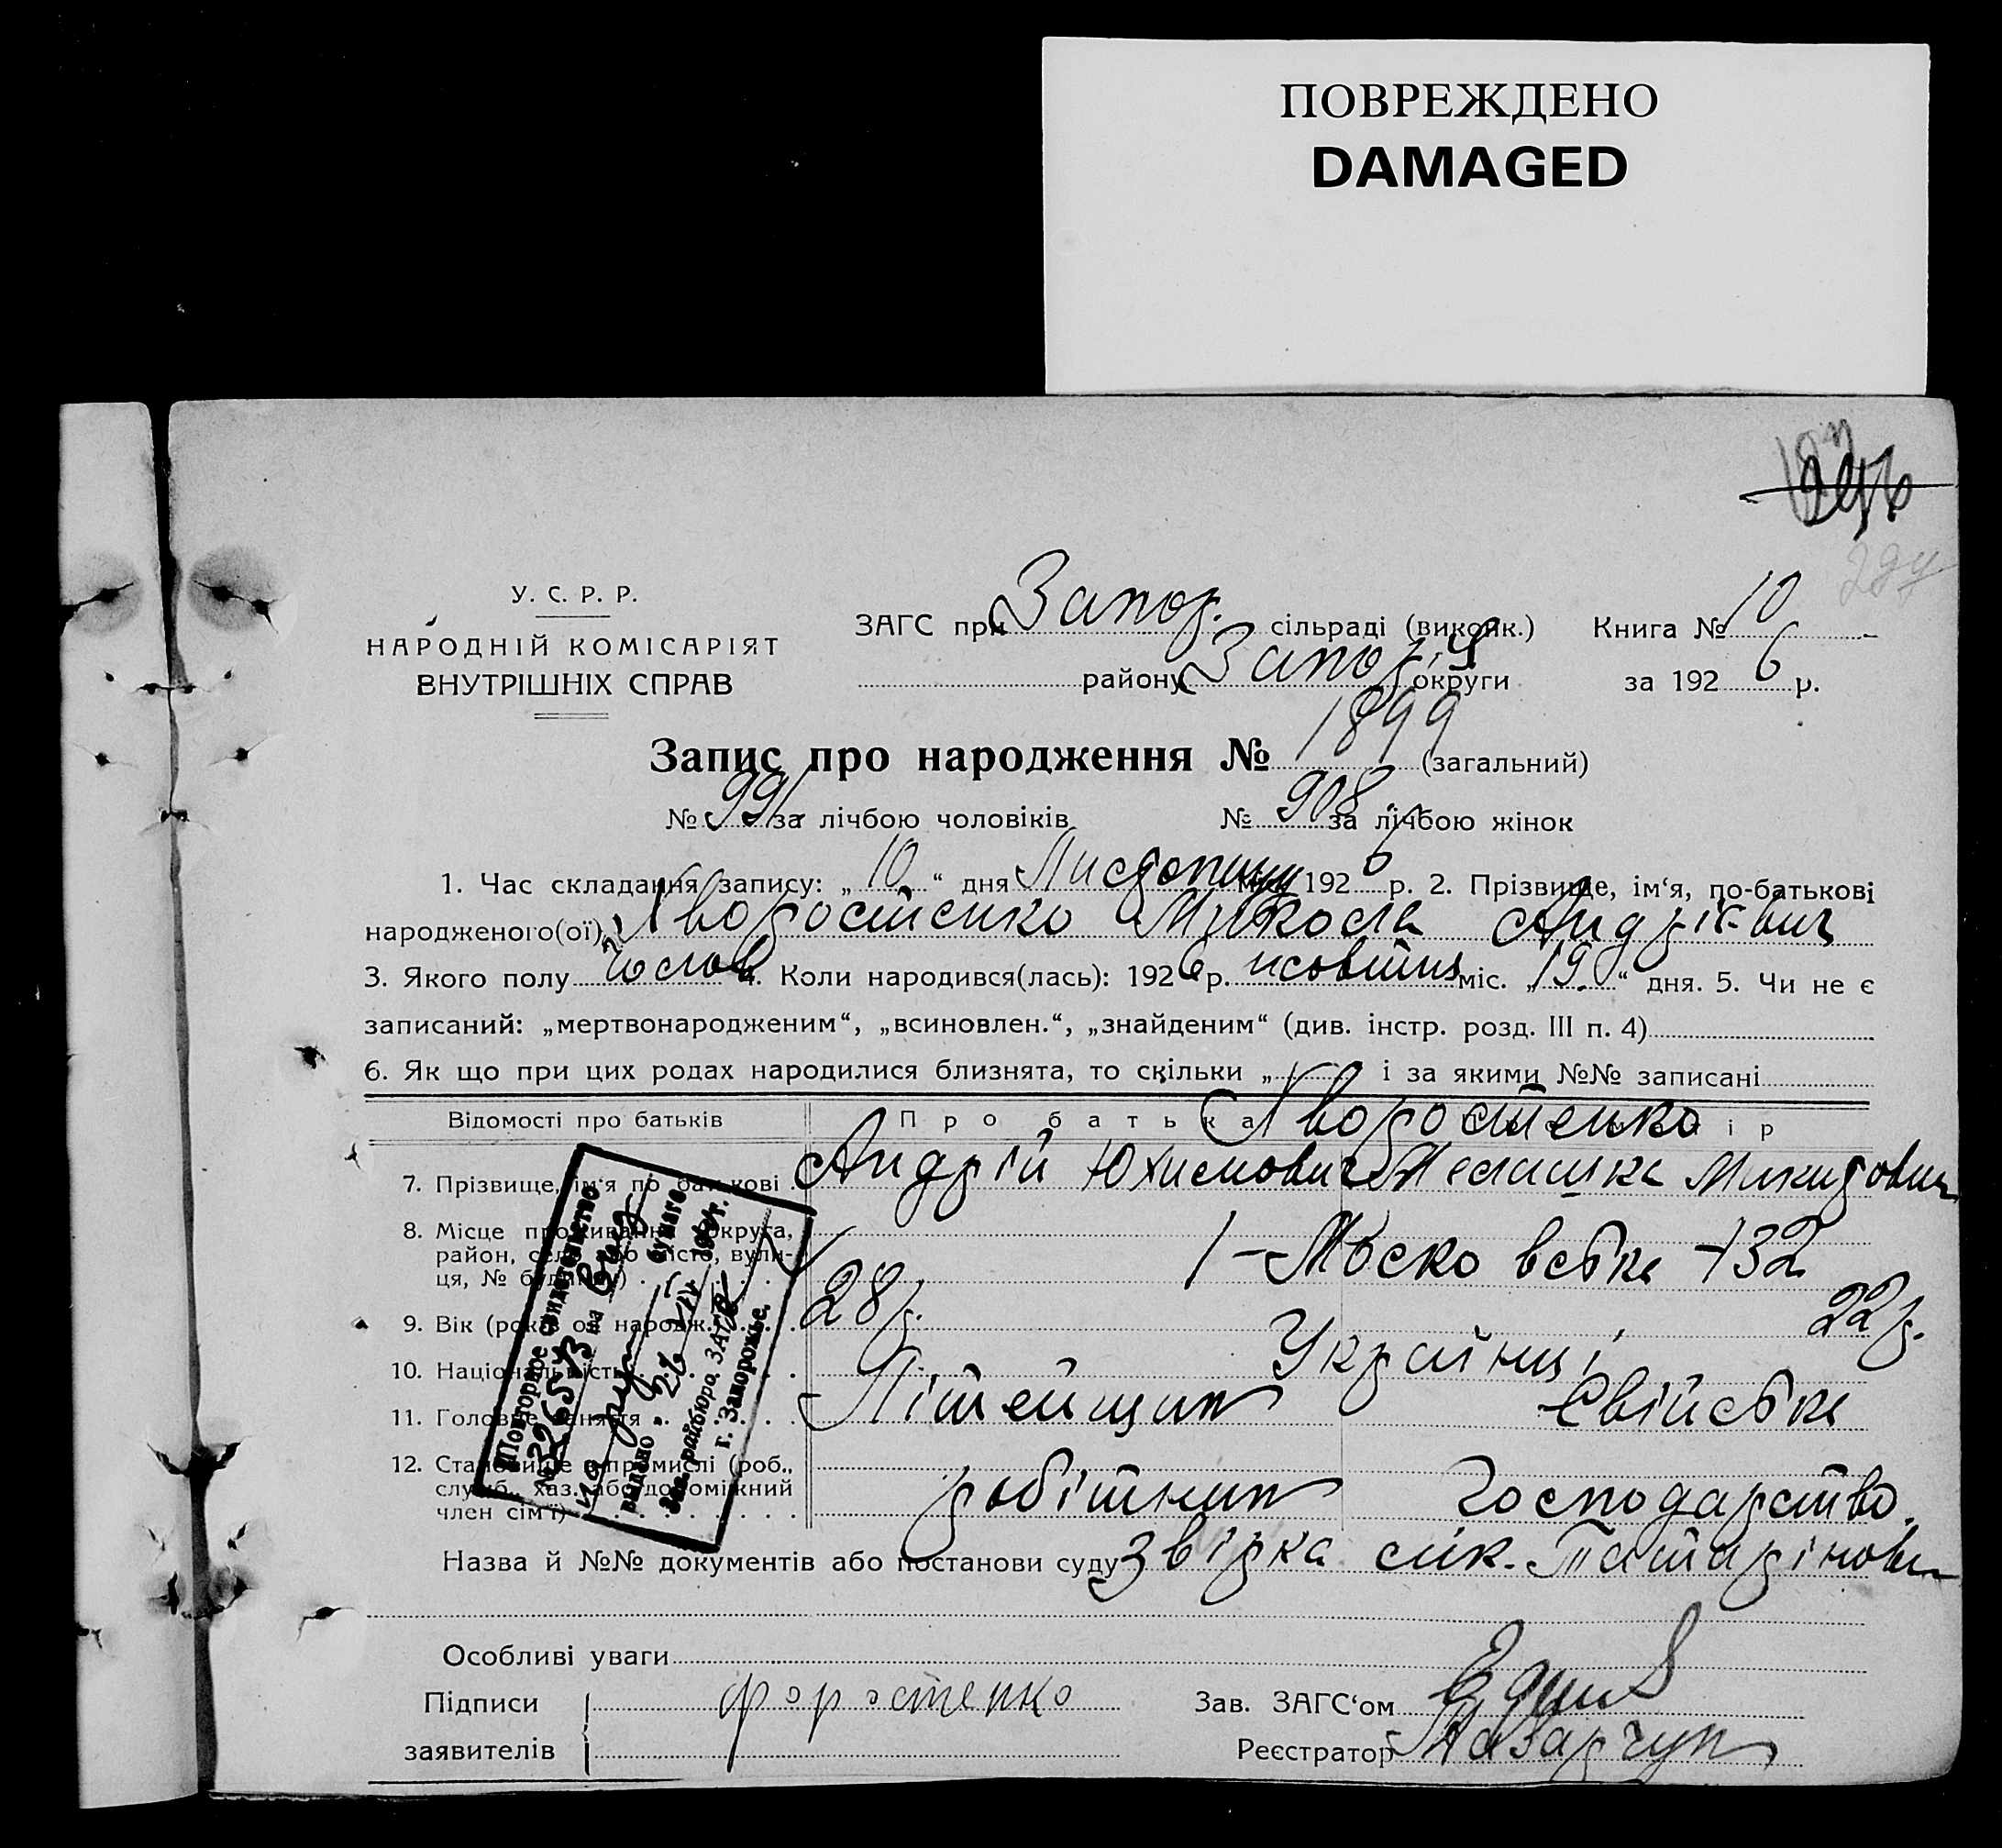 ПОВРЕЖДЕНО
DAMAGED
У. С. Р. Р.
НАРОДНІЙ КОМІСАРІЯТ
ВНУТРІШНІХ СПРАВ
ЗАГС при Запор. сільраді (виконк.) Книга № 10
району Запор. округи за 1926 р.
Запис про народження № 1899 (загальний)
№ 991 за лічбою чоловіків № 908 за лічбою жінок
1. Час складання запису: „ 10 “ дня Листопаду 1926 р. 2. Прізвище, ім‘я, по-батькові
народженого(ої) Хворостенко Микола Андрієвич
3. Якого полу чолов 4. Коли народився(лась): 1926 р. жовтня міс. „ 19 “ дня. 5. Чи не є
записаний: „мертвонародженим“, „всиновлен.“, „знайденим“ (див. інстр. розд. III п. 4)
6. Як що при цих родах народилися близнята, то скільки „ і за якими №№ записані
Відомості про батьків Про батька Хворостенко
7. Прізвище, ім‘я по батькові Андрій Юхимович Мелашка Микидовна
8. Місце проживання округа,
район, село або місто, вули-
ця, № будинку) 1 – Московська 132
9. Вік (років од народж. 28 р. 22 р.
10. Національність Українці
11. Головне заняття Літейщик Свійське
12. Становище в промислі (роб.,
служб., хаз. або допоміжний
член сім‘ї) робітник Господарство.
Повторное свидетельство
№ 326573 на
выдано „26
Зав. райбюро ЗАГС
г. Запорожье.
Назва й №№ документів або постанови суду Звірка Татарінова
Особливі уваги
Підписи форостенко Зав. ЗАГС‘ом
заявителів Реєстратор Назарчук